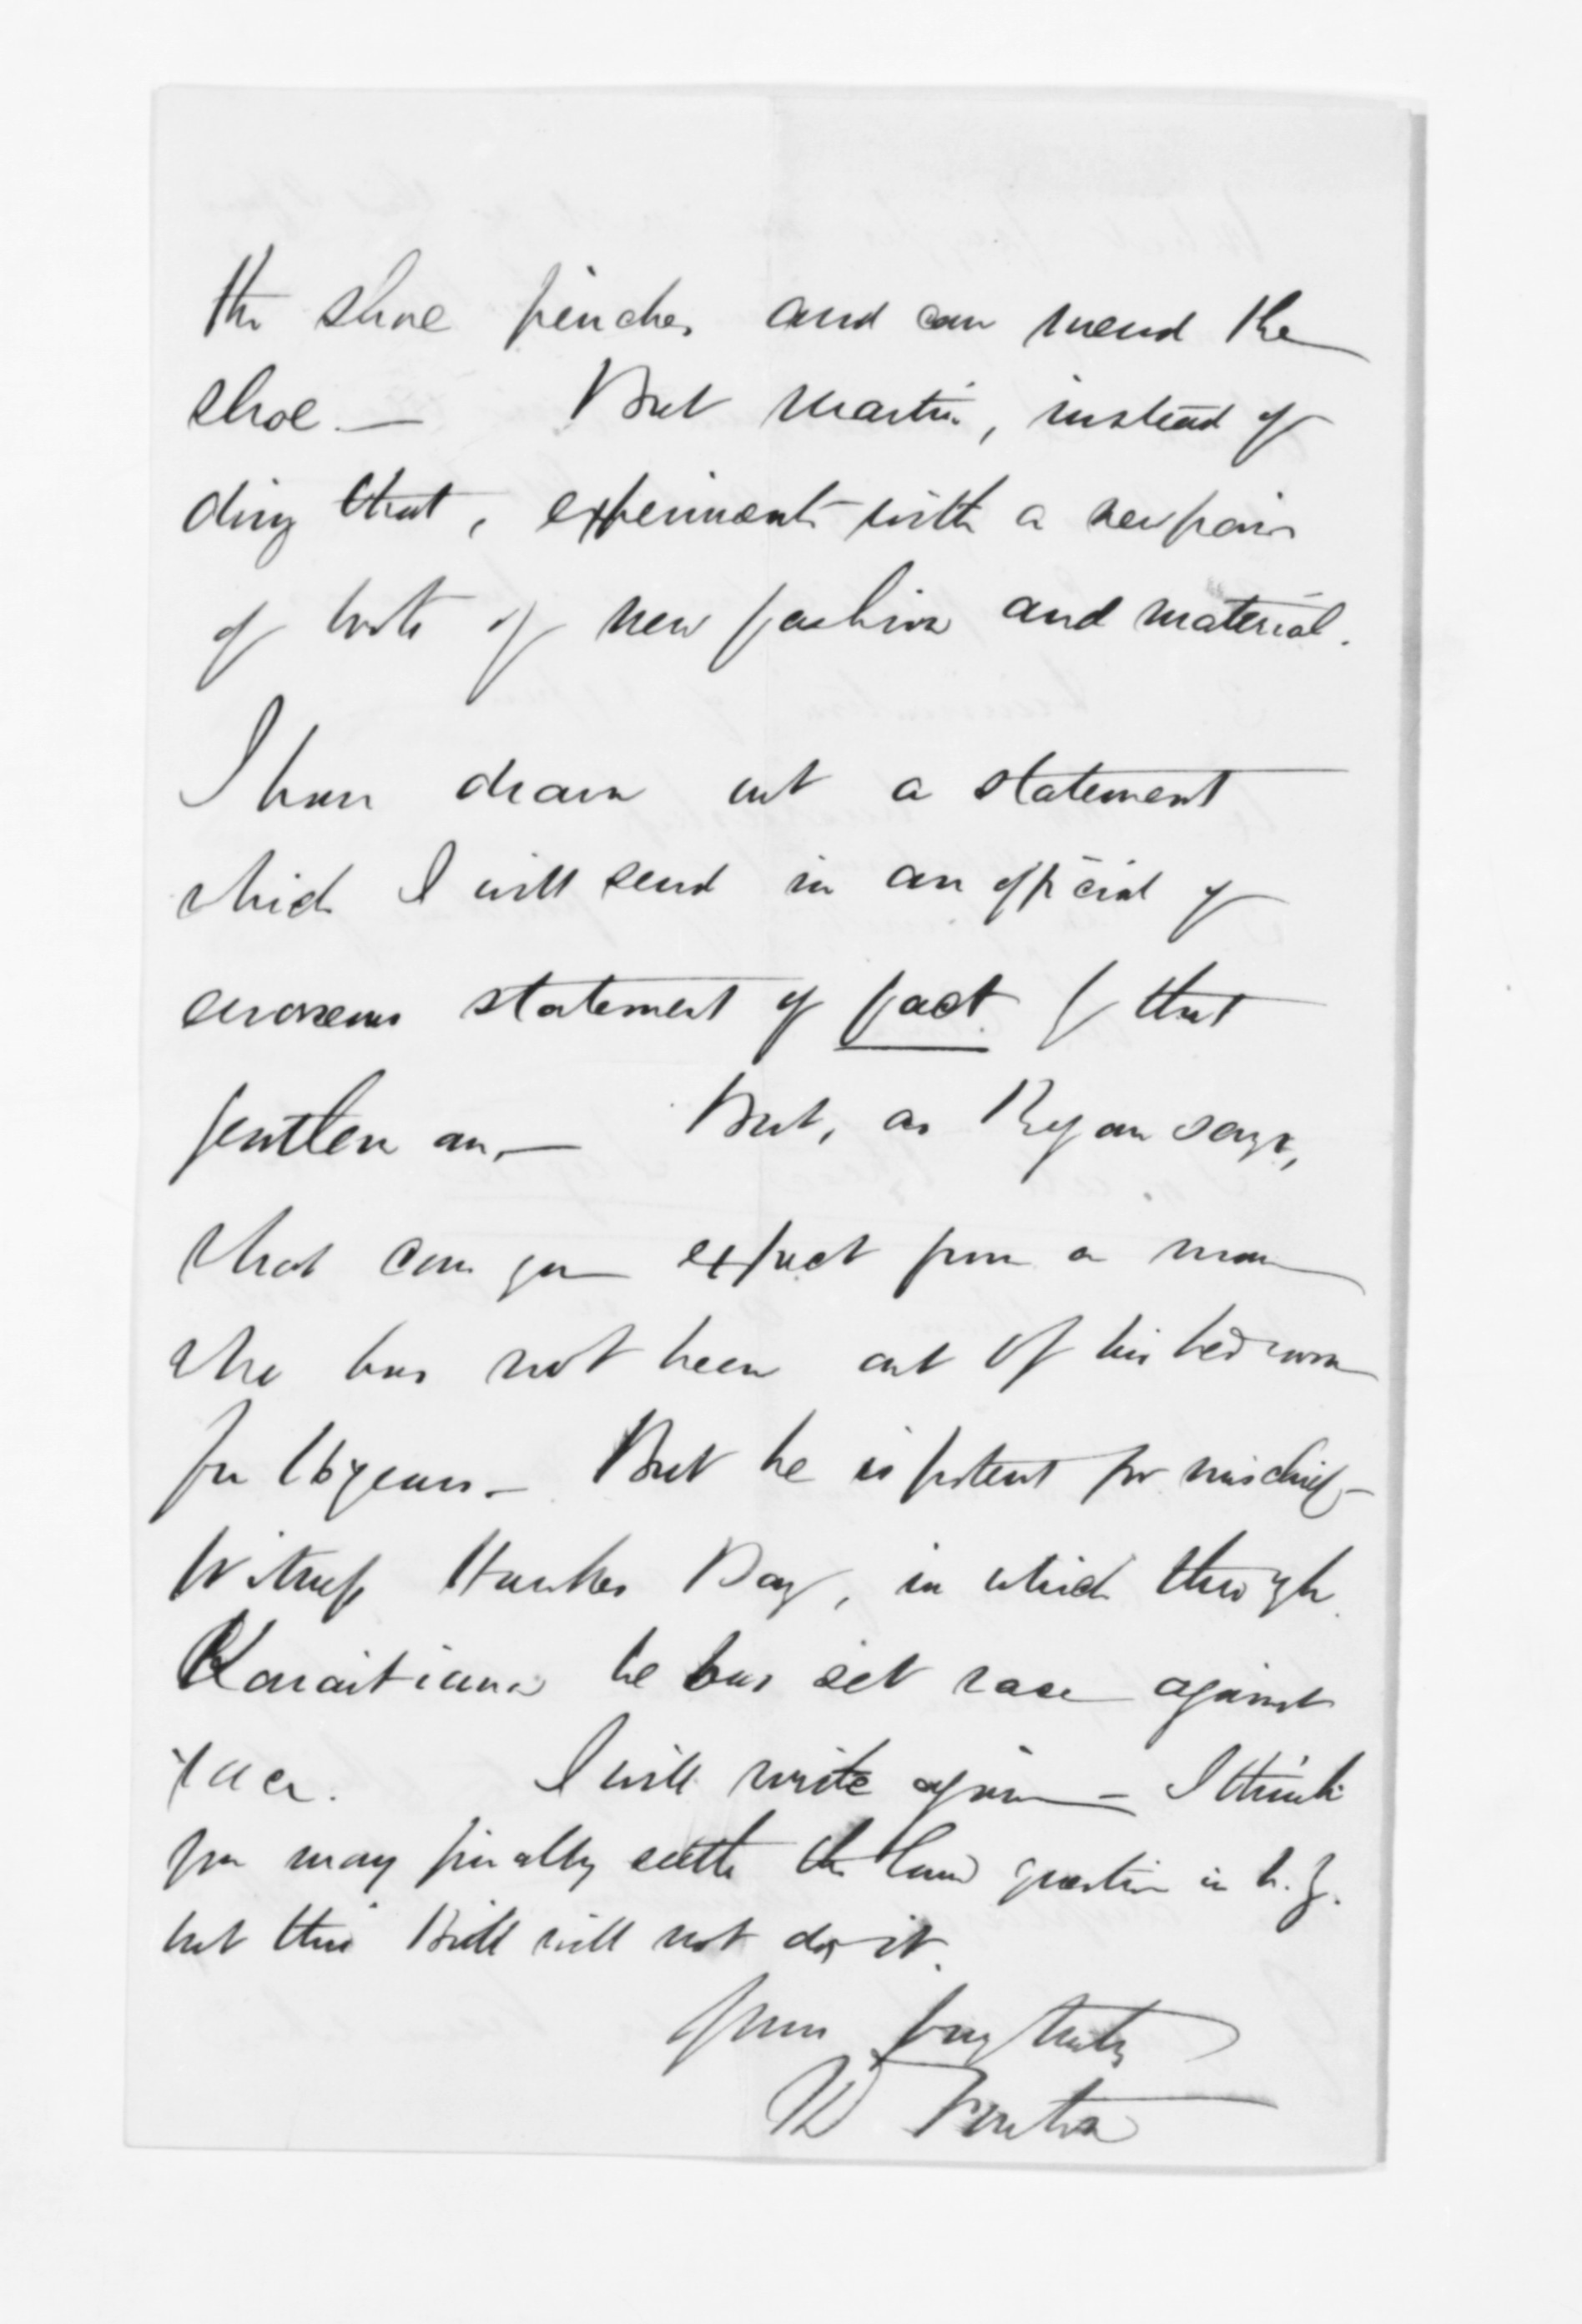 the shoe pinches and can mend the
shoe. — But Martin, instead of
doing that, experiments with a new pair
of boots of new fashion and material.
I have drawn out a statement
which I will send in an official of
erroneous statement of fact by that
gentleman. — But, as Ryan says,
what can you expect from a man
who has not been out of his bedroom
for 16 years — But he is potent for mischief —
Witness Hawkes Bay, in which through
Karaitiana he has set race against
race. I will write again — I think
you may finally settle the land question in N.Z.
but this Bill will not do it.
Yours very truly
Fenton